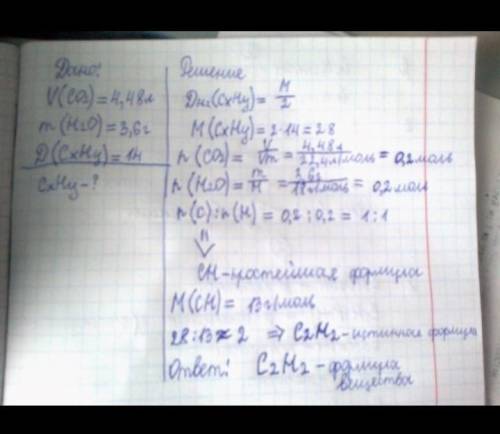 Дано:
V(CO2)=4,48л
m(H2O)=3,6г
D(CxHy)=14
CxHy-?
Решение
DH2(CxHy)= M/2
M(CxHy)=2·14=28
n(CO2)= V/Vm = 4,48л/22,4л/моль = 0,2моль
n(H2O)= m/M = 3,6г/18г/моль = 0,2моль
n(C):n(H) = 0,2:0,2 = 1:1
CH-простейшая формула
M(CH)= 13г/моль
28:13≈2 ⇒ C2H2-истинная формула
Ответ: C2H2-формула
вещества